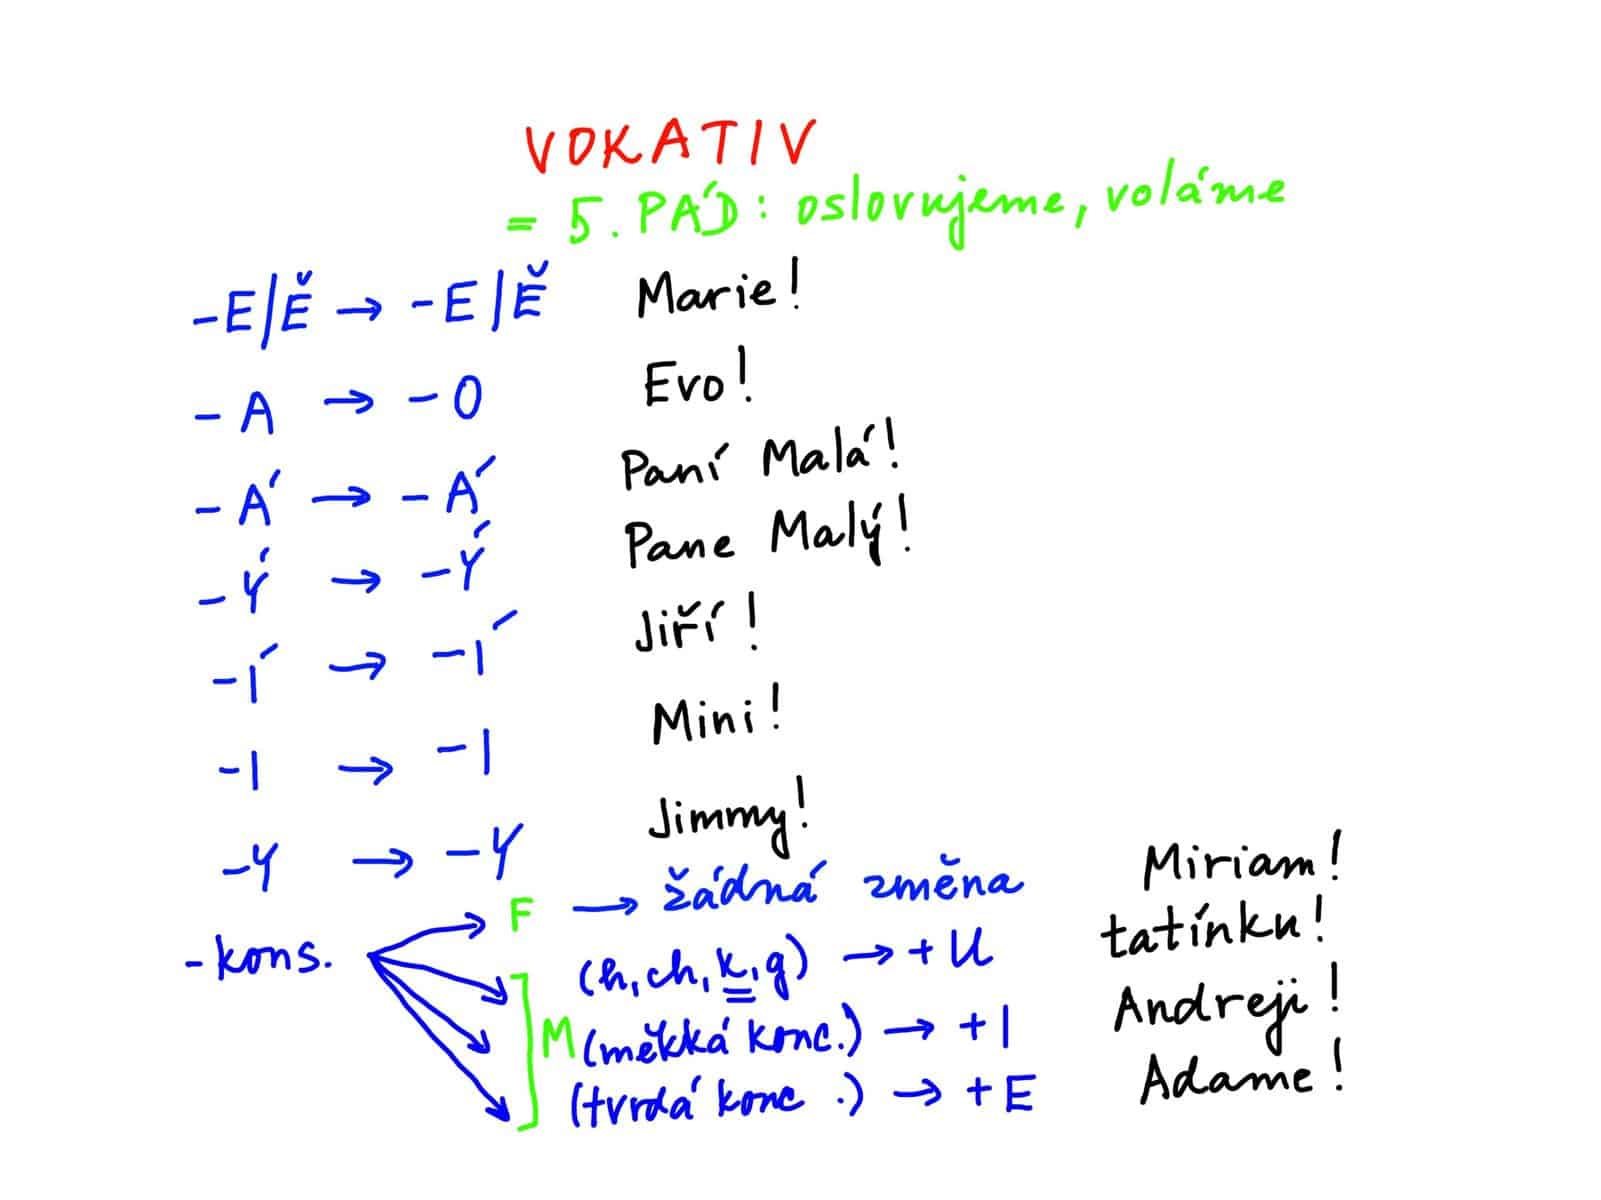 VOKATIV
= 5. PÁD: oslovujeme, voláme
-E/Ě → -E/Ě Marie!
-A → -O Evo!
-Á → -Á Paní Malá!
-Ý → -Ý Pane Malý!
-Í → -Í Jiří!
-I → -I Mini!
-Y → -Y Jimmy!
-kons. F → žádná změna Miriam!
M (h, ch, k, g) → +U tatínku!
(měkká konc.) → +I Andreji!
(tvrdá konc.) → +E Adame!